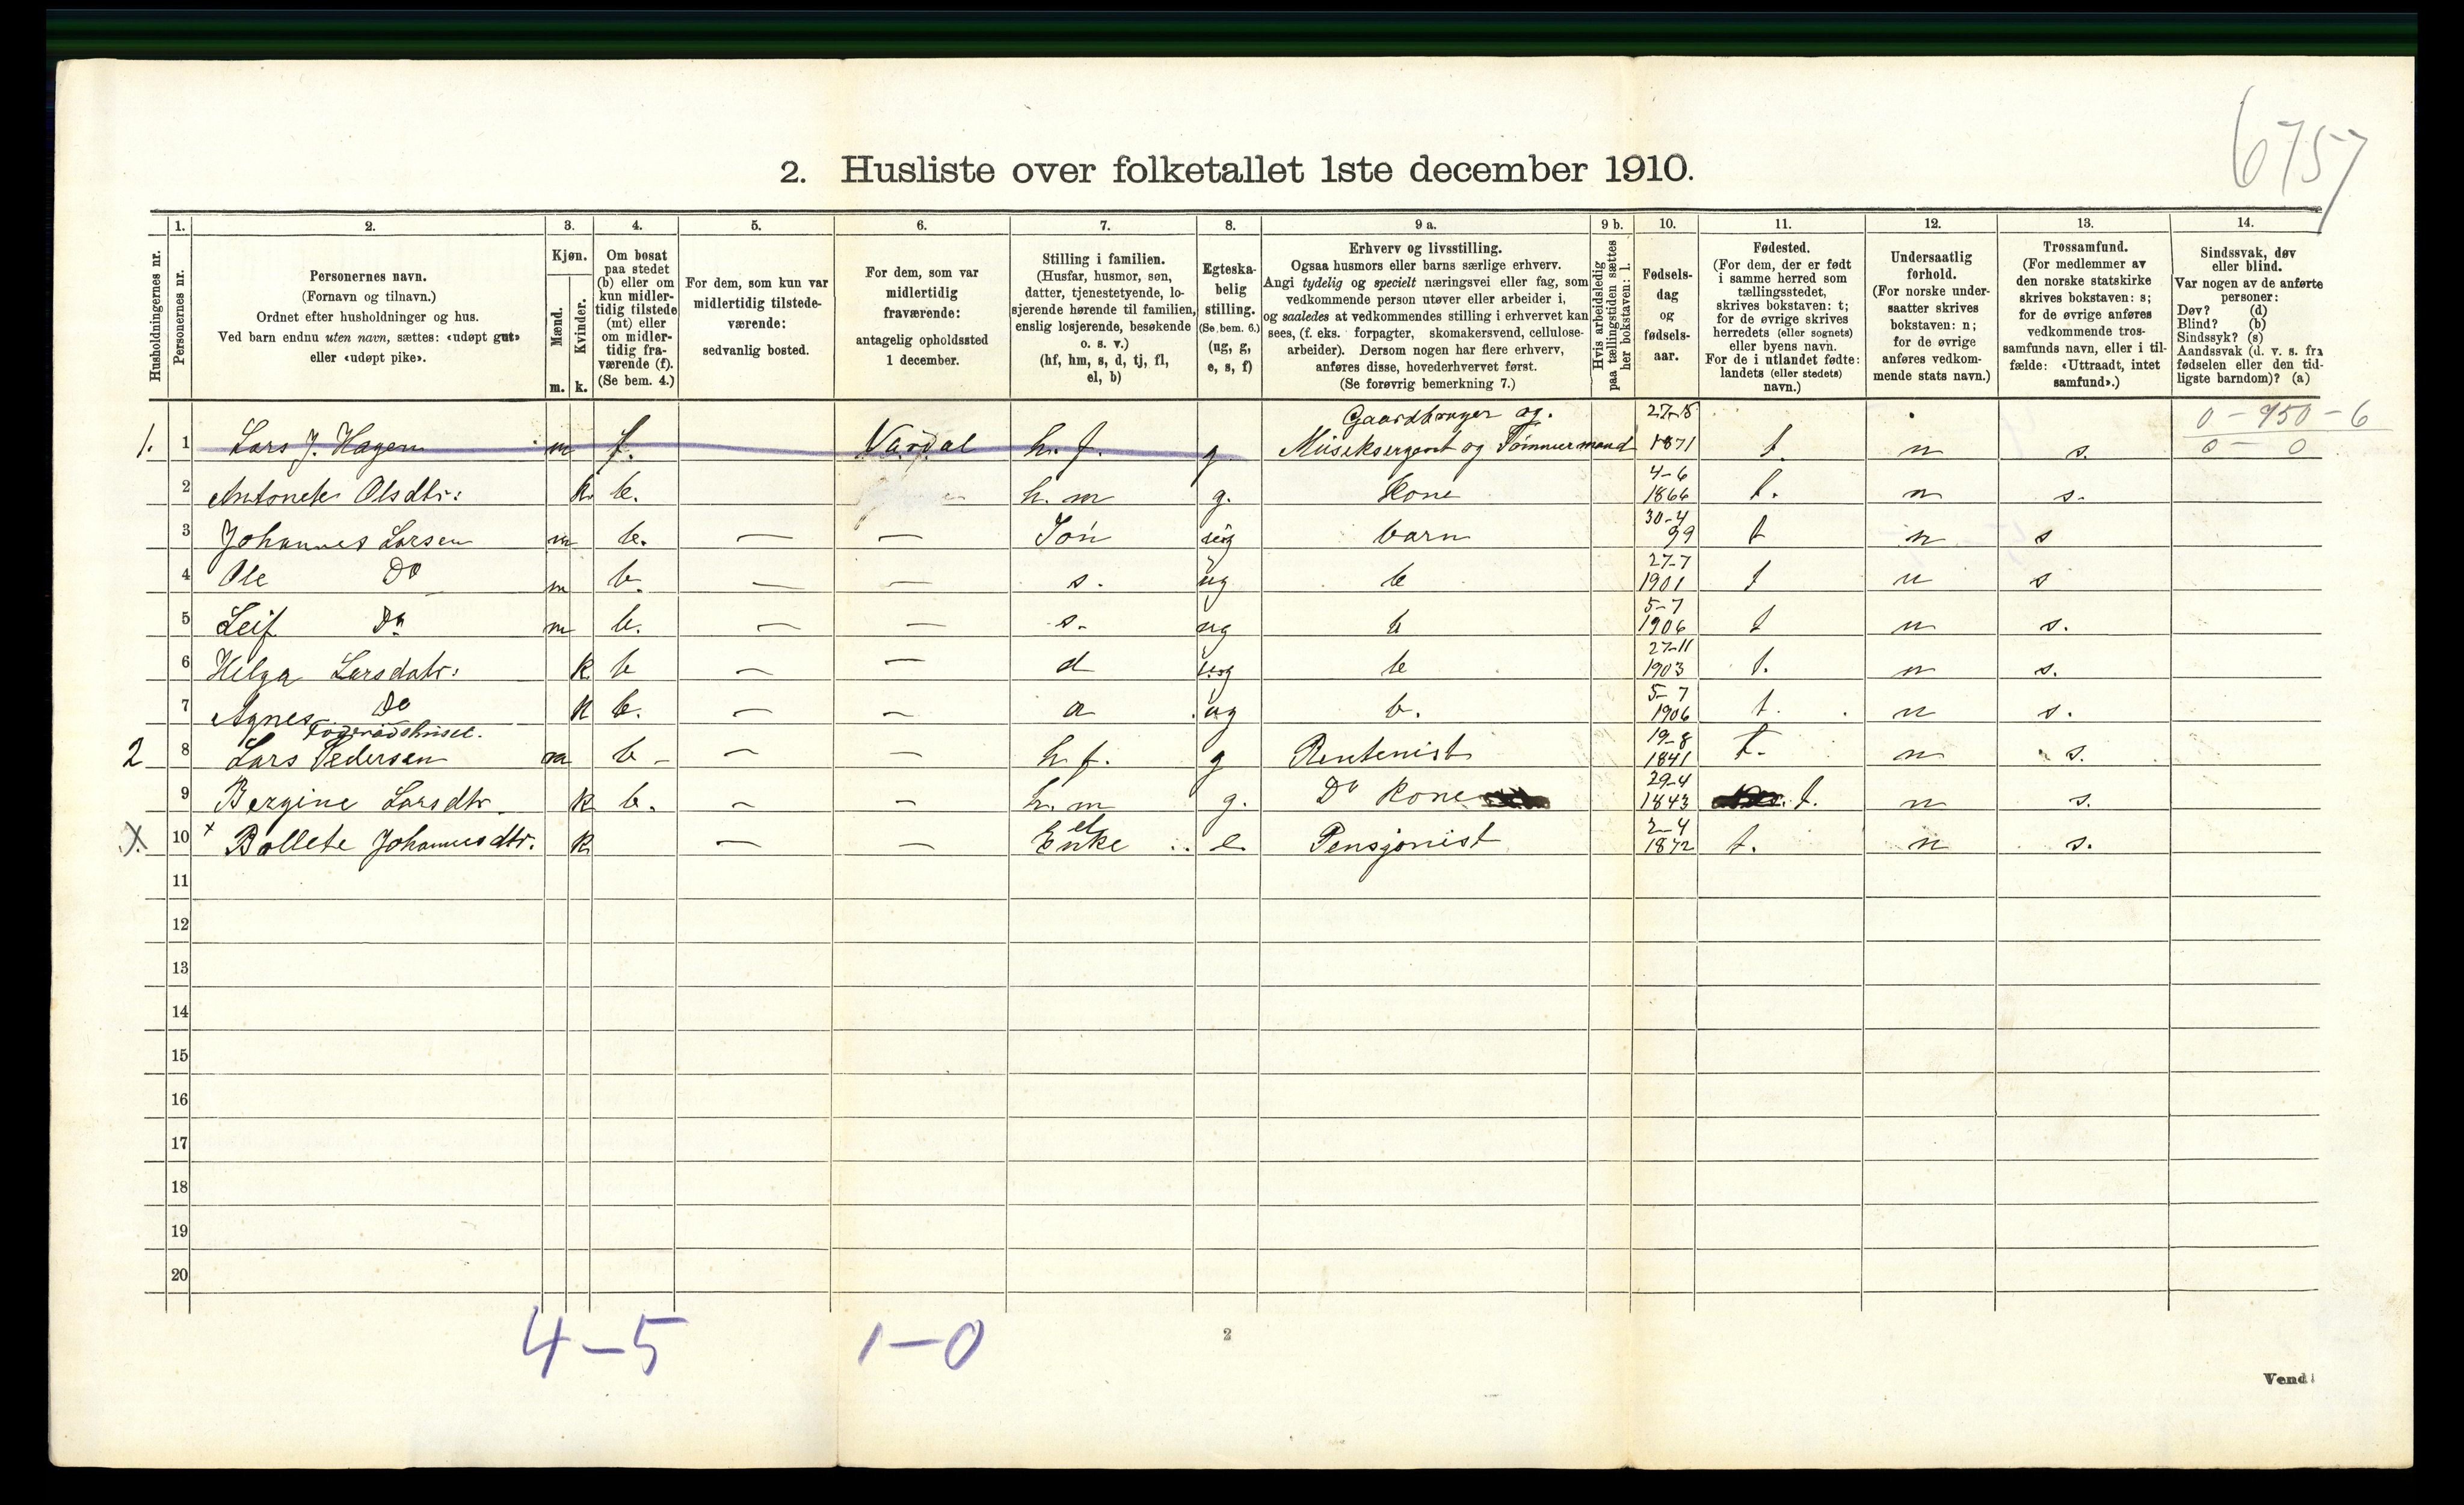 6757
2. Husliste over folketallet 1ste december 1910.
1. 2. 3. 4. 5. 6. 7. 8. 9 a. 9 b. 10. 11. 12. 13. 14.
Husholdningernes nr.
Personernes nr.
Personernes navn.
(Fornavn og tilnavn.)
Ordnet efter husholdninger og hus.
Ved barn endnu uten navn, sættes: «udøpt gut»
eller «udøpt pike».
Kjøn.
Mænd.
Kvinder.
m. k.
Om bosat
paa stedet
(b) eller om
kun midler-
tidig tilstede
(mt) eller
om midler-
tidig fra-
værende (f).
(Se bem. 4.)
For dem, som kun var
midlertidig tilstede-
værende:
sedvanlig bosted.
For dem, som var
midlertidig
fraværende:
antagelig opholdssted
1 december.
Stilling i familien.
(Husfar, husmor, søn,
datter, tjenestetyende, lo-
sjerende hørende til familien,
enslig losjerende, besøkende
o. s. v.)
(hf, hm, s, d, tj, fl,
el, b)
Egteska-
belig
stilling.
(Se bem. 6.)
(ug, g,
e, s, f)
Erhverv og livsstilling.
Ogsaa husmors eller barns særlige erhverv.
Angi tydelig og specielt næringsvei eller fag, som
vedkommende person utøver eller arbeider i,
og saaledes at vedkommendes stilling i erhvervet kan
sees, (f. eks. forpagter, skomakersvend, cellulose-
arbeider). Dersom nogen har flere erhverv,
anføres disse, hovederhvervet først.
(Se forøvrig bemerkning 7.)
Hvis arbeidsledig
paa tællingstiden sættes
her bokstaven: l.
Fødsels-
dag
og
fødsels-
aar.
Fødested.
(For dem, der er født
i samme herred som
tællingsstedet,
skrives bokstaven: t;
for de øvrige skrives
herredets (eller sognets)
eller byens navn.
For de i utlandet fødte:
landets (eller stedets)
navn.)
Undersaatlig
forhold.
(For norske under-
saatter skrives
bokstaven: n;
for de øvrige
anføres vedkom-
mende stats navn.)
Trossamfund.
(For medlemmer av
den norske statskirke
skrives bokstaven: s;
for de øvrige anføres
vedkommende tros-
samfunds navn, eller i til-
fælde: «Uttraadt, intet
samfund».)
Sindssvak, døv
eller blind.
Var nogen av de anførte
personer:
Døv? (d)
Blind? (b)
Sindssyk? (s)
Aandssvak (d. v. s. fra
fødselen eller den tid-
ligste barndom)? (a)
Gaardbruger og. 27-8 0 - 950 - 6
1. 1 Lars J. Hagen m f. Vardal h. f. g Musiksergent og Tømmermand 1871 t. n s. 0 - 0
4-6
2 Antonete Olsdtr: k. b. h. m g. Kone 1866 t. n s.
30-4
3 Johannes Larsen m b. — — Søn ug barn 99 t n s
27-7
4 Ole Do m b. — — s. ug b 1901 t n s
5-7
5 Leif Do m b. — — s. ug b 1906 t n s.
27-11
6 Helga Larsdatr: k b — — d ug b 1903 t. n s.
5-7
7 Agnes Do k b. — — d ug b. 1906 t. n s.
Føderådshuset. 19-8
2 8 Lars Pedersen m b - — — h f. g Rentenist 1841 t. n s.
29-4
9 Bergine Larsdtr. k b. — — h. m g. Do Kone 1843 t. n s.
el 2-4
X 10 x Bollete Johannesdtr. k — — Enke e. Pensjonist 1872 t. n s.
11
12
13
14
15
16
17
18
19
20
4-5 1-0
2
Vend!